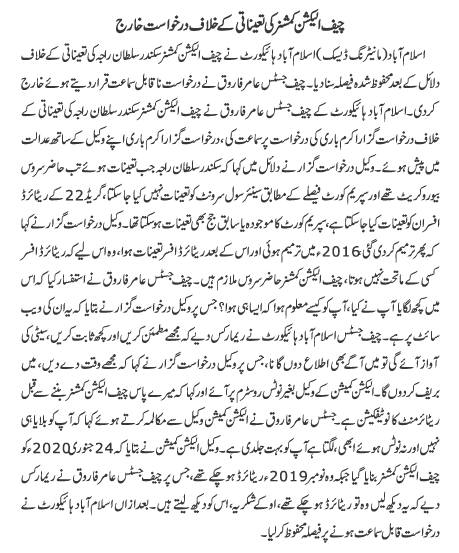 چیف الیکشن کمشنر کی تعیناتی کے خلاف درخواست خارج
اسلام آباد (مانیٹرنگ ڈیسک) اسلام آباد ہائیکورٹ نے چیف الیکشن کمشنر سکندر سلطان راجہ کی تعیناتی کے خلاف
دلائل کے بعد محفوظ شدہ فیصلہ سنا دیا۔ چیف جسٹس عامر فاروق نے درخواست ناقابل سماعت قرار دیتے ہوئے خارج
کردی۔ اسلام آباد ہائیکورٹ کے چیف جسٹس عامر فاروق نے چیف الیکشن کمشنر سکندر سلطان راجہ کی تعیناتی کے
خلاف درخواست گزار اکرم باری کی درخواست پر سماعت کی، درخواست گزار اکرم باری اپنے وکیل کے ساتھ عدالت
میں پیش ہوئے۔ وکیل درخواست گزار نے دلائل میں کہا کہ سکندر سلطان راجہ جب تعینات ہوئے تب حاضر سروس
بیوروکریٹ تھے اور سپریم کورٹ فیصلے کے مطابق سینئر سول سرونٹ کو تعینات نہیں کیا جاسکتا، گریڈ 22 کے ریٹائرڈ
افسران کو تعینات کیا جاسکتا ہے، سپریم کورٹ کا موجودہ یا سابق جج بھی تعینات ہوسکتا تھا۔ وکیل درخواست گزار نے کہا
کہ پھر ترمیم کردی گئی، 2016ء میں ترمیم ہوئی اور اس کے بعد ریٹائرڈ افسر تعینات ہوا، وہ اس لیے کہ ریٹائرڈ افسر
کسی کے ماتحت نہیں ہوتا، چیف الیکشن کمشنر حاضر سروس ملازم ہیں۔ چیف جسٹس عامر فاروق نے استفسار کیا کہ اس
میں کچھ لگایا آپ نے کیا، آپ کو کیسے معلوم ہوا کہ ایسا ہی ہوا؟ جس پر وکیل درخواست گزار نے بتایا کہ یہ ان کی ویب
سائٹ پر ہے۔ چیف جسٹس اسلام آباد ہائیکورٹ نے ریمارکس دیے کہ مجھے مطمئن کریں اور کچھ ثابت کریں، سیٹی کی
آواز آئے گی تو میں آگے بھی اطلاع دوں گا نا، جس پر وکیل درخواست گزار نے کہا کہ مجھے وقت دے دیں، میں
بریف کردوں گا۔ الیکشن کمیشن کے وکیل بغیر نوٹس روسٹرم پر آئے اور کہا کہ میرے پاس چیف الیکشن کمشنر بننے سے قبل
ریٹائرمنٹ کا نوٹیفکیشن ہے۔ جسٹس عامر فاروق نے الیکشن کمیشن وکیل سے مکالمہ کرتے ہوئے کہا کہ آپ کو بلایا ہی
نہیں اور نہ نوٹس ہوئے ابھی، لگتا ہے آپ کو بہت جلدی ہے۔ وکیل الیکشن کمیشن نے بتایا کہ 24 جنوری 2020ء کو
چیف الیکشن کمشنر بنایا گیا جبکہ وہ نومبر 2019ء ریٹائرڈ ہوچکے تھے، جس پر چیف جسٹس عامر فاروق نے ریمارکس
دیے کہ یہ دیکھ لیں وہ تو ریٹائرڈ ہوچکے تھے، اوکے شکریہ، اس کو دیکھ لیتے ہیں۔ بعد ازاں اسلام آباد ہائیکورٹ نے
درخواست قابل سماعت ہونے پر فیصلہ محفوظ کرلیا۔